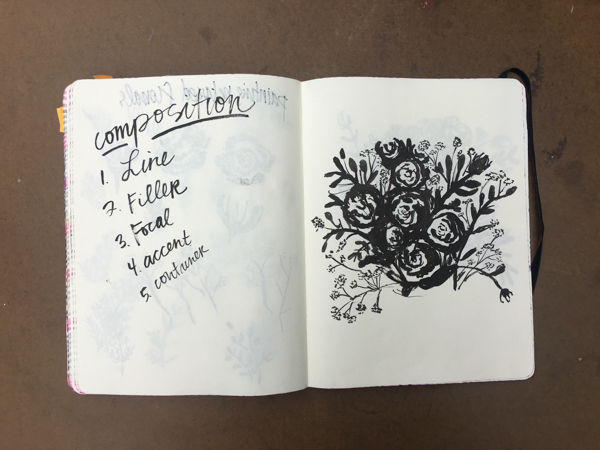 composition
1. Line
2. Filler
3. Focal
4. accent
5. container